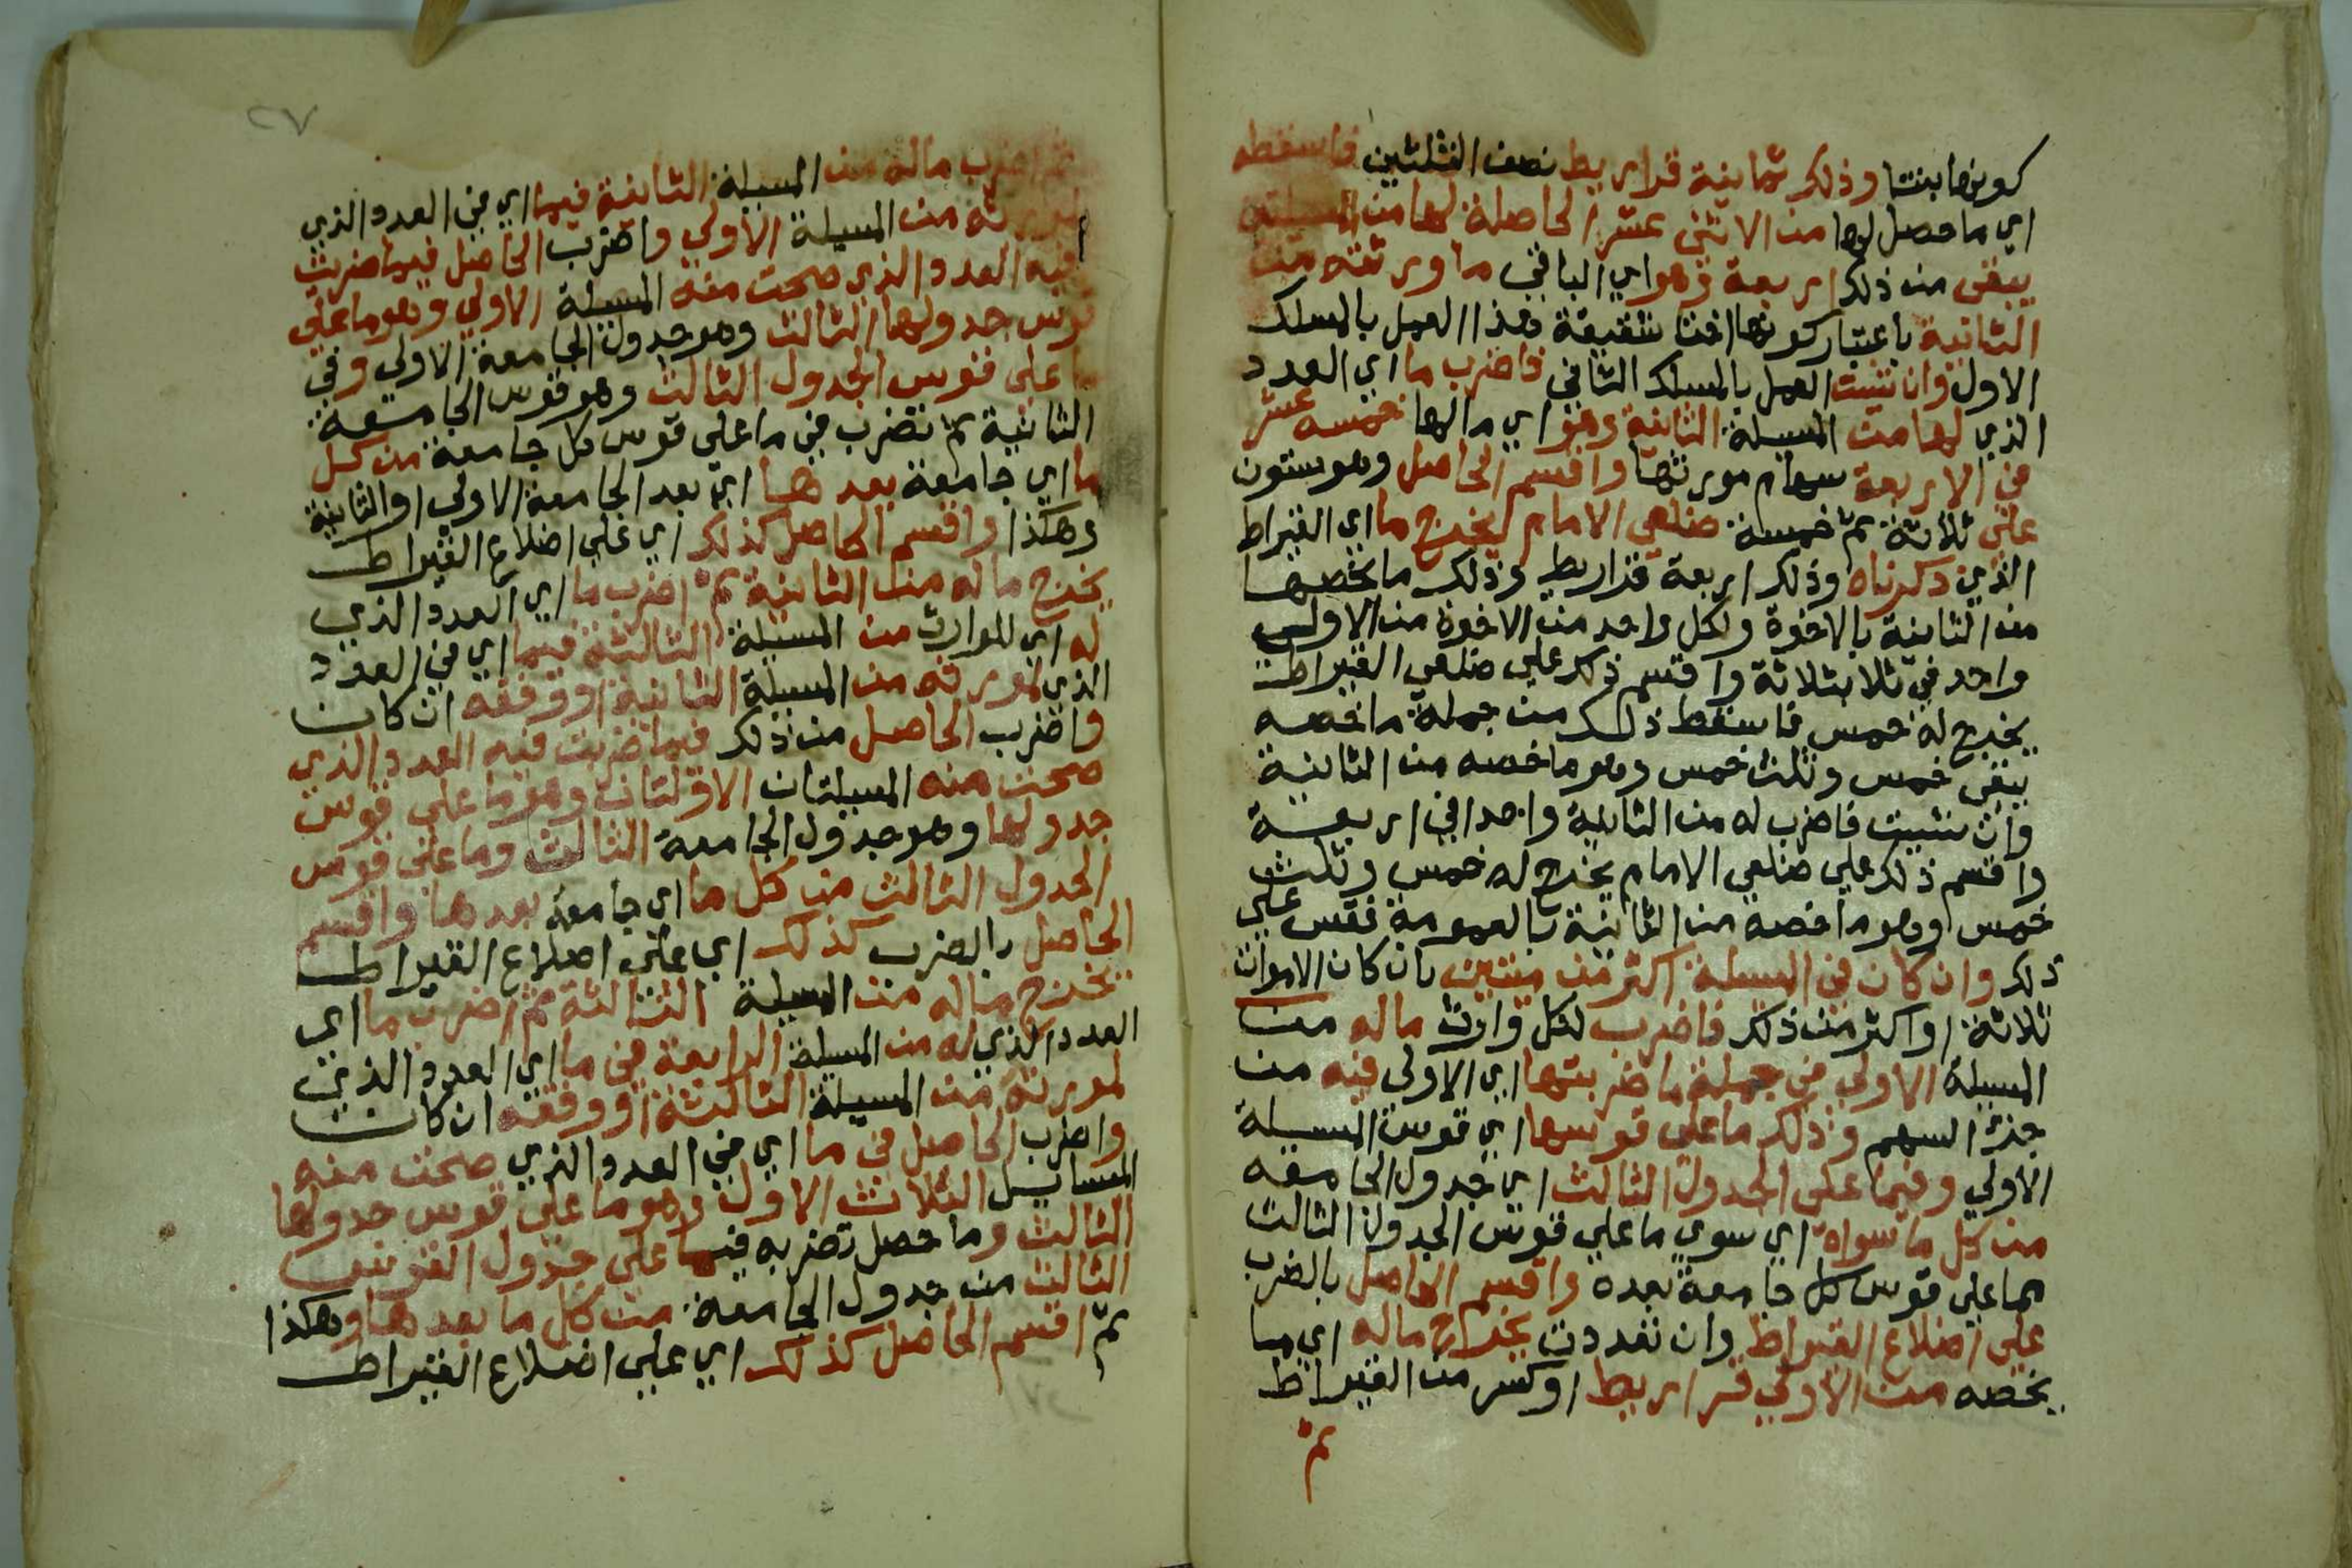 كونها بنتا وذلك ثمانية قراريط نصف الثلثين فاسقطه
اي ما حصل لها من الاثني عشر الحاصلة لها من المسيلتين
يبقى من ذلك اربعة وهو اي الباقي ما ورثته من
الثانية باعتبار كونها اختا شقيقة هذا العمل بالمسلك
الاول وان شيت العمل بالمسلك الثاني فاضرب ما اي العدد
الذي لها من المسيلة الثانية وهو اي ما لها خمسه عشر
في الاربعة سهام مورثها واقسم الحاصل وهو ستون
على ثلاثة ثم خمسة ضلعي الامام يخرج ما اي القيراط
الذي ذكرناه وذلك اربعة قراريط وذلك ما يخصها
من الثانية بالاخوة ولكل واحد من الاخوة من الاولى
واحد في ثلاثة بثلاثة واقسم ذلك على ضلعي القيراط
يخرج له خمس فاسقط ذلك من جملة ما خصه
يبقى خمس وثلث خمس وهو ما خصه من الثانية
وان شيت فاضرب له من الثانية واحدا في اربعة
واقسم ذلك على ضلعي الامام يخرج له خمس وثلث
خمس وهو ما خصه من الثانية بالعمومة فقس على
ذلك وان كان في المسيلة اكثر من ميتين بان كان الاموات
ثلاثة او اكثر من ذلك فاضرب لكل وارث ماله من
المسيلة الاولى في جملة ما ضربتها اي الاولى فيه من
جزء السهم وذلك ما على قوسها اي قوس المسيلة
الاولي وفيما على الجدول الثالث اي جدول الجامعه
من كل ما سواه اي سوي ما على قوس الجدول الثالث
مما على قوس كل جامعة بعده واقسم الحاصل بالضرب
على اضلاع القيراط وان تعددت يخرج ماله اي ما
يخصه من الاولي قراريط او كسر من القيراط
ثم
٢٧
ثم اضرب ماله من المسيلة الثانية فيما اي في العدد الذي
لمورثه من المسيلة الاولي واضرب الحاصل فيما ضربت
فيه العدد الذي صحت منه المسيلة الاولي وهو ما على
قوس جدولها الثالث وهو جدول الجامعة الاولى وفي
ما على قوس الجدول الثالث وهو قوس الجامعة
الثانية ثم تضرب في ما على قوس كل جامعة من كل
ما اي جامعة بعدها اي بعد الجامعة الاولي او الثانية
وهكذا واقسم الحاصل كذلك اي على اضلاع القيراط
يخرج ماله من الثانية ثم اضرب ما اي العدد الذي
له اي للوارث من المسيلة الثالثة فيما اي في العدد
الذي لمورثه من المسيلة الثانية او وفقه ان كان
واضرب الحاصل من ذلك فيما ضربت فيه العدد الذي
صحت منه المسيلتان الاولتان وهو ما على قوس
جدولها وهو جدول الجامعة الثالث وما على قوس
الجدول الثالث من كل ما اي جامعة بعدها واقسم
الحاصل بالضرب كذلك اي على اضلاع القيراط
يخرج ماله من المسيلة الثالثة ثم اضرب ما اي
العدد الذي له من المسيلة الرابعة في ما اي العدد الذي
لمورثه من المسيلة الثالثة او وفقه ان كان
واضرب الحاصل في ما اي في العدد الذي صحت منه
المسايل الثلاث الاول وهو ما على قوس جدولها
الثالث وما حصل تضربه فيما على جدول القوس
الثالث من جدول الجامعة من كل ما بعدها وهكذا
ثم اقسم الحاصل كذلك اي على اضلاع القيراط